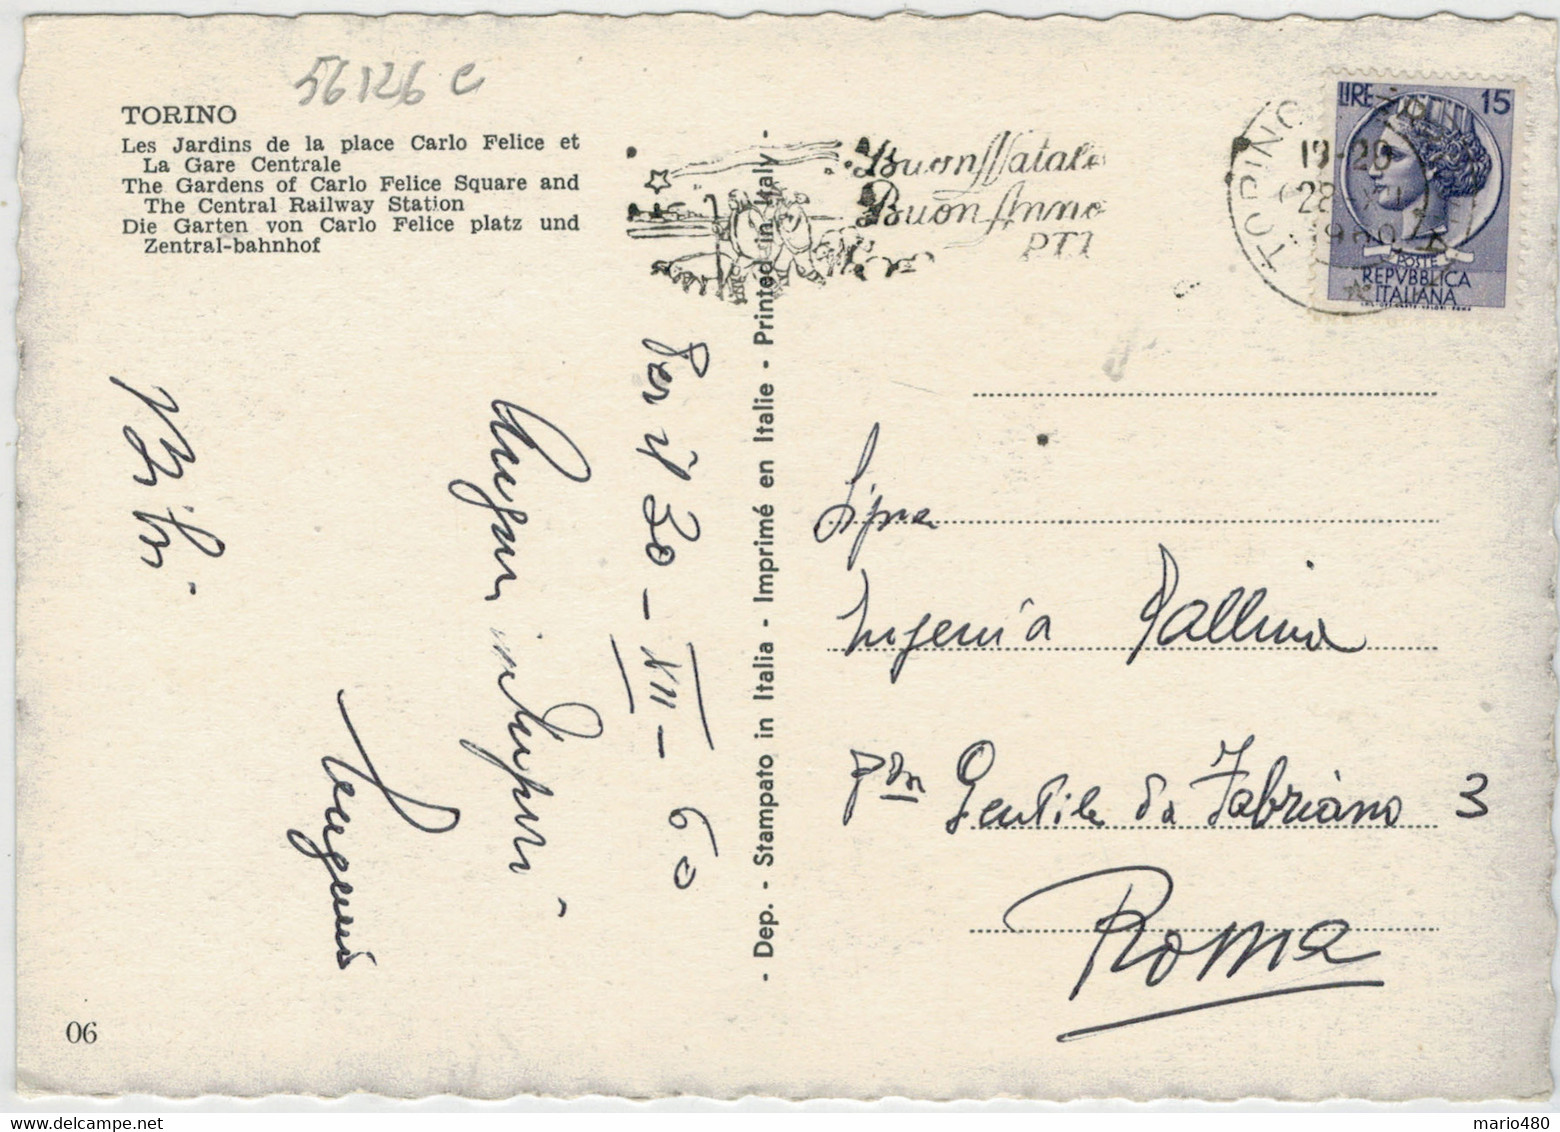 56126 C
TORINO
Les Jardins de la place Carlo Felice et
La Gare Centrale
The Gardens of Carlo Felice Square and
The Central Railway Station
Die Garten von Carlo Felice platz und
Zentral-bahnhof
Buon Natale
Buon Anno
PTT
TORINO
19-20
28 XII
1960
LIRE 15
POSTE
REPVBBLICA
ITALIANA
Per il 30 - XII - 60
Auguri
- Dep. - Stampato in Italia - Imprimé en Italie - Printed in Italy -
Sig.na
Eugenia Pallina
Gentile da Fabriano 3
Roma
06
mario480